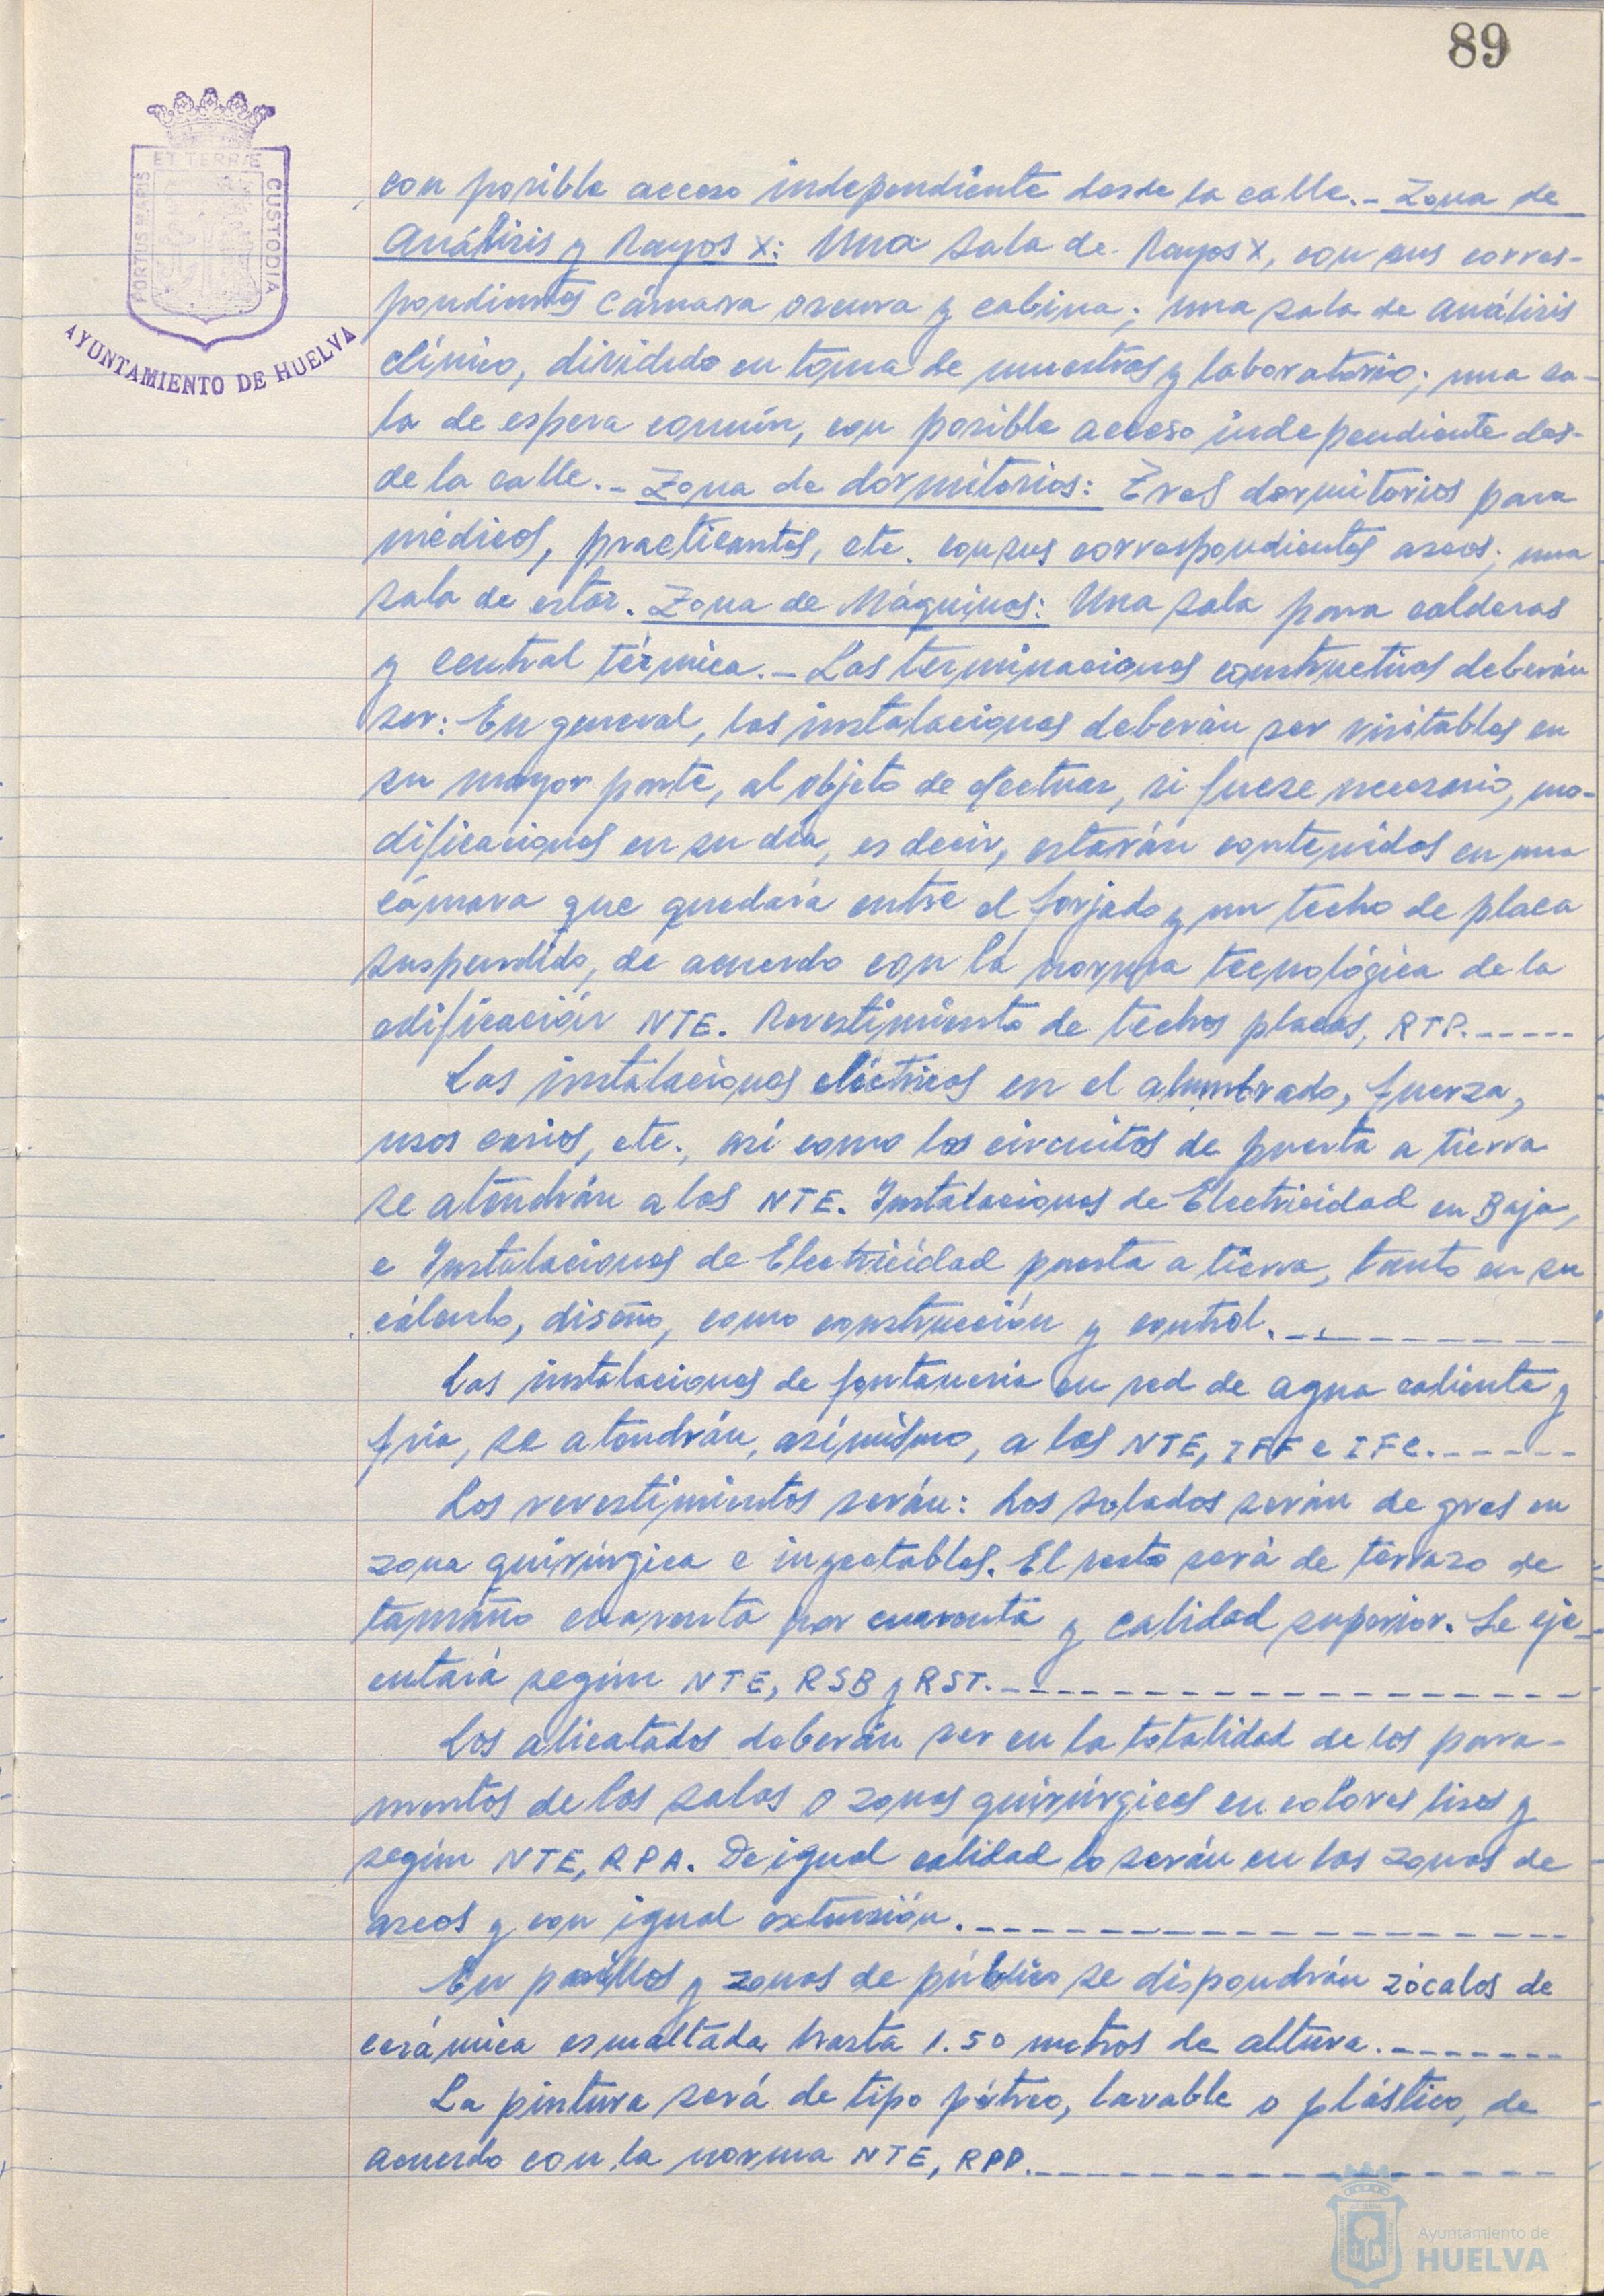 89
ET TERRÆ
PORTUS MARIS
CUSTODIA
AYUNTAMIENTO DE HUELVA
con posible acceso independiente desde la calle.- Zona de
Análisis y Rayos X: Una sala de Rayos X, con sus corres-
pondientes cámara oscura y cabina; una sala de análisis
clínico, dividido en toma de muestras y laboratorio; una sa-
la de espera común, con posible acceso independiente des-
de la calle.- Zona de dormitorios: Tres dormitorios para
médicos, practicantes, etc. con sus correspondientes aseos; una
sala de estar. Zona de Máquinas: Una sala para calderas
y central térmica.- Las terminaciones constructivas deberán
ser: En general, las instalaciones deberán ser visitables en
su mayor parte, al objeto de efectuar, si fuese necesario, mo-
dificaciones en su día, es decir, estarán contenidas en una
cámara que quedará entre el forjado y un techo de placa
suspendido, de acuerdo con la norma tecnológica de la
edificación NTE. Revestimiento de techos placas, RTP.-----
Las instalaciones eléctricas en el alumbrado, fuerza,
usos varios, etc., así como los circuitos de puesta a tierra
se atendrán a las NTE. Instalaciones de Electricidad en Baja,
e Instalaciones de Electricidad puesta a tierra, tanto en su
cálculo, diseño, como construcción y control.---------
Las instalaciones de fontanería en red de agua caliente y
fría, se atendrán, asímismo, a las NTE, IFF e IFC.------
Los revestimientos serán: Los solados serán de gres en
zona quirúrgica e inyectables. El resto será de terrazo de
tamaño cuarenta por cuarenta y calidad superior. Se eje-
cutará según NTE, RSB y RST.--------------------
Los alicatados deberán ser en la totalidad de los para-
mentos de las salas o zonas quirúrgicas en colores lisos y
según NTE, RPA. De igual calidad lo serán en las zonas de
aseos y con igual extensión.-------------------
En pasillos y zonas de público se dispondrán zócalos de
cerámica esmaltada hasta 1.50 metros de altura.-------
La pintura será de tipo pétreo, lavable o plástico, de
acuerdo con la norma NTE, RPP.------------------
Ayuntamiento de
HUELVA